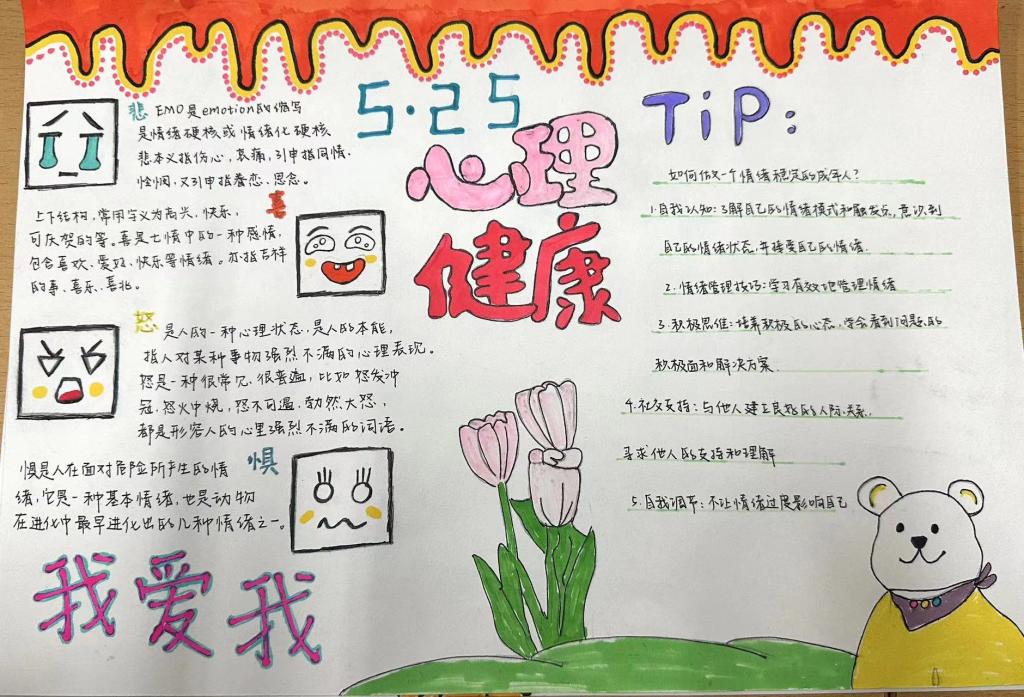 5·25
心理
健康
悲 EMO是emotion的缩写
是情绪硬核或情绪化硬核
悲本义指伤心,哀痛,引申指同情.
怜悯,又引申指眷恋、思念。
喜
上下结构,常用字义为高兴,快乐,
可庆贺的等。喜是七情中的一种感情,
包含喜欢、爱好、快乐等情绪。亦指吉祥
的事、喜乐、喜兆。
怒 是人的一种心理状态,是人的本能,
指人对某种事物强烈不满的心理表现。
怒是一种很常见、很普遍,比如怒发冲
冠,怒火中烧,怒不可遏,勃然大怒,
都是形容人的心里强烈不满的词语。
惧
惧是人在面对危险所产生的情
绪,它是一种基本情绪,也是动物
在进化中最早进化出的几种情绪之一。
我爱我
TiP:
如何做一个情绪稳定的成年人?
1.自我认知:了解自己的情绪模式和触发点,意识到
自己的情绪状态,并接受自己的情绪.
2.情绪管理技巧:学习有效地管理情绪
3.积极思维:培养积极的心态,学会看到问题的
积极面和解决方案.
4.社交支持:与他人建立良好的人际关系.
寻求他人的支持和理解
5.自我调节:不让情绪过度影响自己